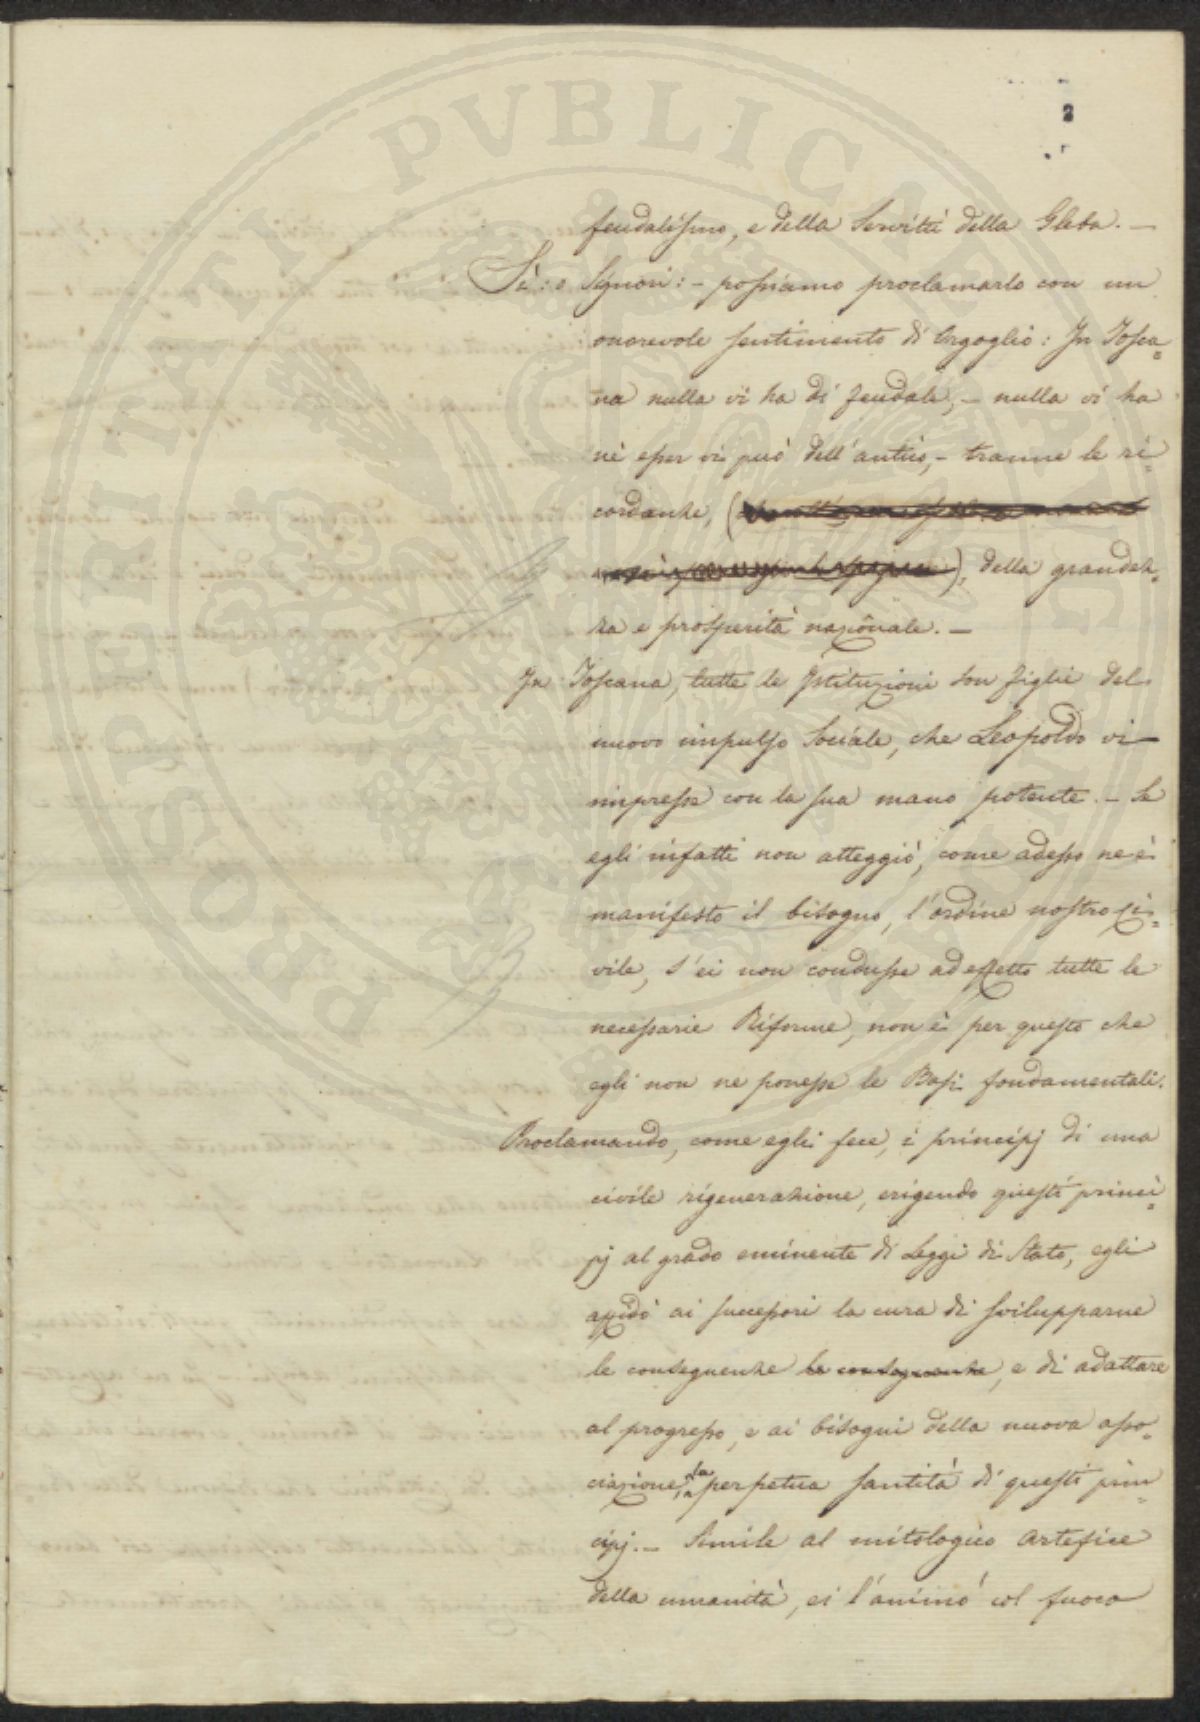 PROSPERITATI PVBLICAE AVGENDAE
2
feudalismo, e della Servitù della Gleba. —
Sì: o Signori: - possiamo proclamarlo con un
onorevole sentimento di Orgoglio: In Tosca=
na nulla vi ha di feudale, — nulla vi ha
nè esser vi può dell'antico, - tranne le ri=
cordanze, (
), della grandez=
za e prosperità nazionale. —
In Toscana, tutte le Istituzioni son figlie del
nuovo impulso Sociale, che Leopoldo vi
impresse con la sua mano potente. — Se
egli infatti non atteggiò, come adesso ne è
manifesto il bisogno, l'ordine nostro ci=
vile, s'ei non condusse ad effetto tutte le
necessarie Riforme, non è per questo che
egli non ne ponesse le Basi fondamentali.
Proclamando, come egli fece, i principj di una
civile rigenerazione, erigendo questi princi=
pj al grado eminente di Leggi di Stato, egli
affidò ai successori la cura di svilupparne
le conseguenze le conseguenze, e di adattare
al progresso, e ai bisogni della nuova asso=
ciazione, la perpetua santità di questi prin=
cipj. — Simile al mitologico artefice
della umanità, ei l'animò col fuoco